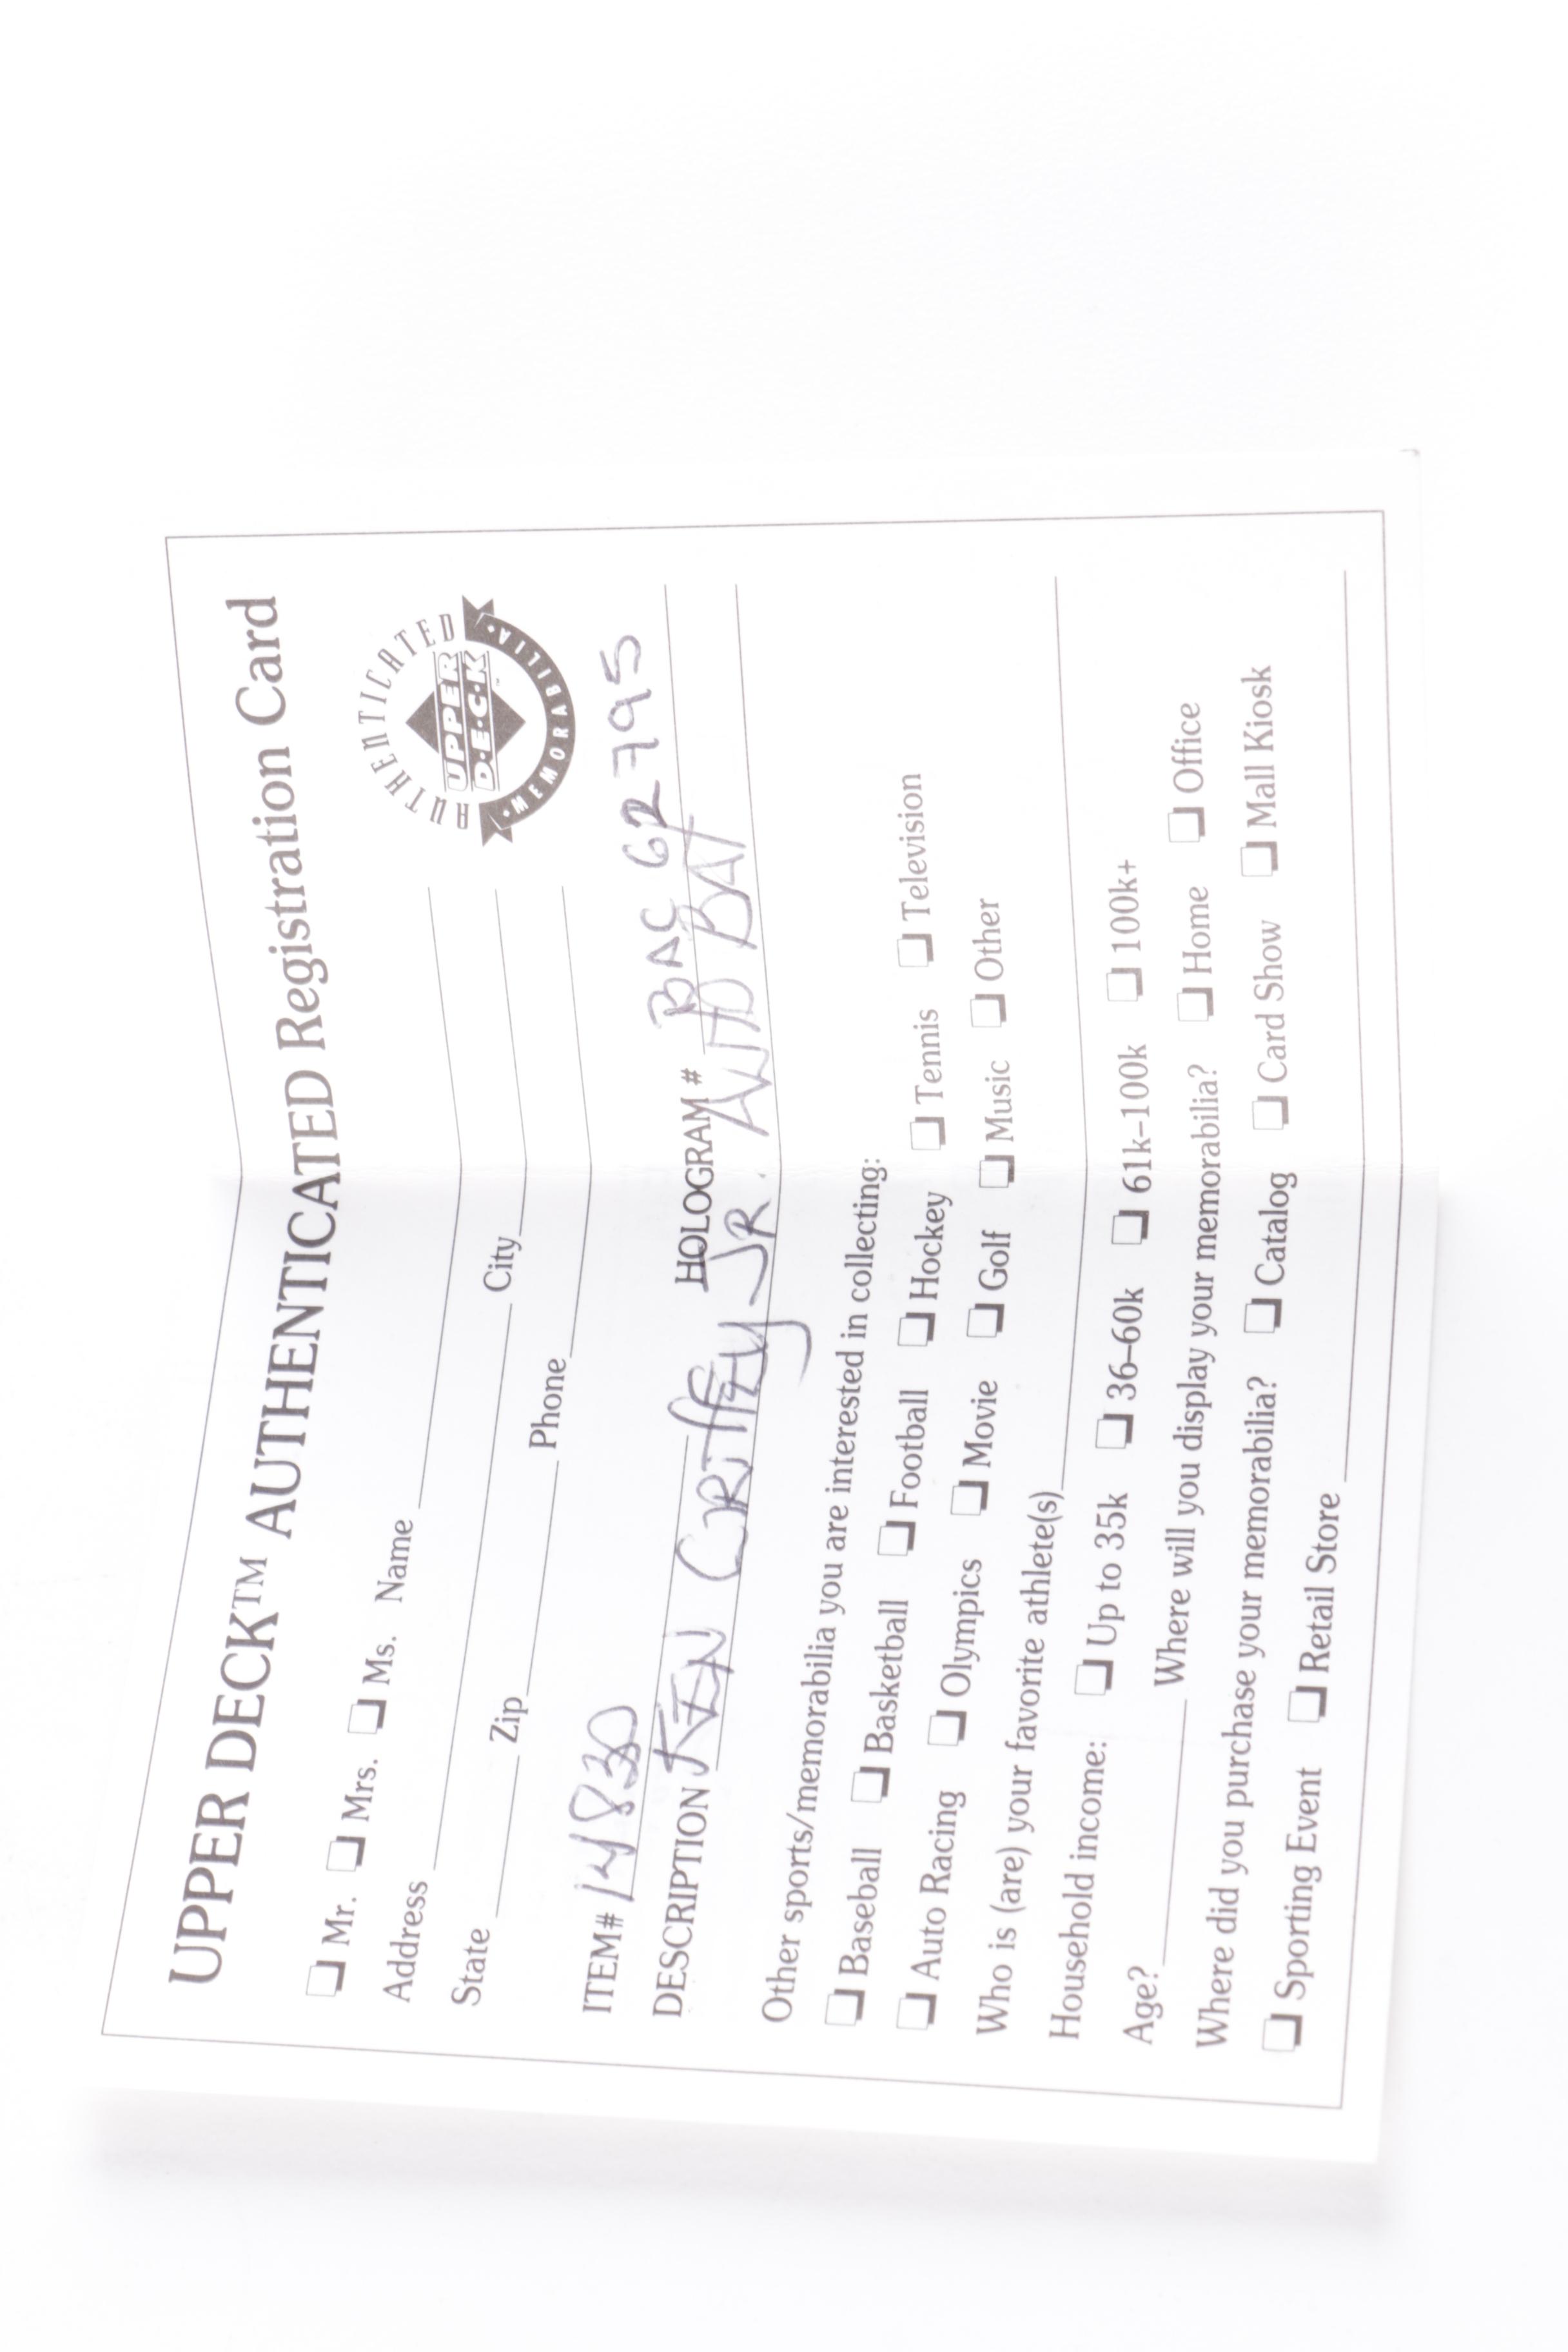 UPPER DECK™ AUTHENTICATED Registration Card
❏ Mr. ❏ Mrs. ❏ Ms. Name
Address City
State Zip Phone
AUTHENTICATED
UPPER
D·E·C·K
·MEMORABILIA·
ITEM# 14830 HOLOGRAM # BAC 62795
DESCRIPTION KEN GRIffEy JR. AUTO BAT
Other sports/memorabilia you are interested in collecting:
❏ Baseball ❏ Basketball ❏ Football ❏ Hockey ❏ Tennis ❏ Television
❏ Auto Racing ❏ Olympics ❏ Movie ❏ Golf ❏ Music ❏ Other
Who is (are) your favorite athlete(s)
Household income: ❏ Up to 35k ❏ 36–60k ❏ 61k–100k ❏ 100k+
Age? Where will you display your memorabilia? ❏ Home ❏ Office
Where did you purchase your memorabilia? ❏ Catalog ❏ Card Show ❏ Mall Kiosk
❏ Sporting Event ❏ Retail Store